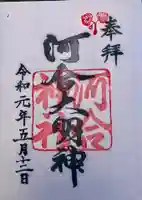 奉拝
河合大明神
河合神社
令和元年五月十二日